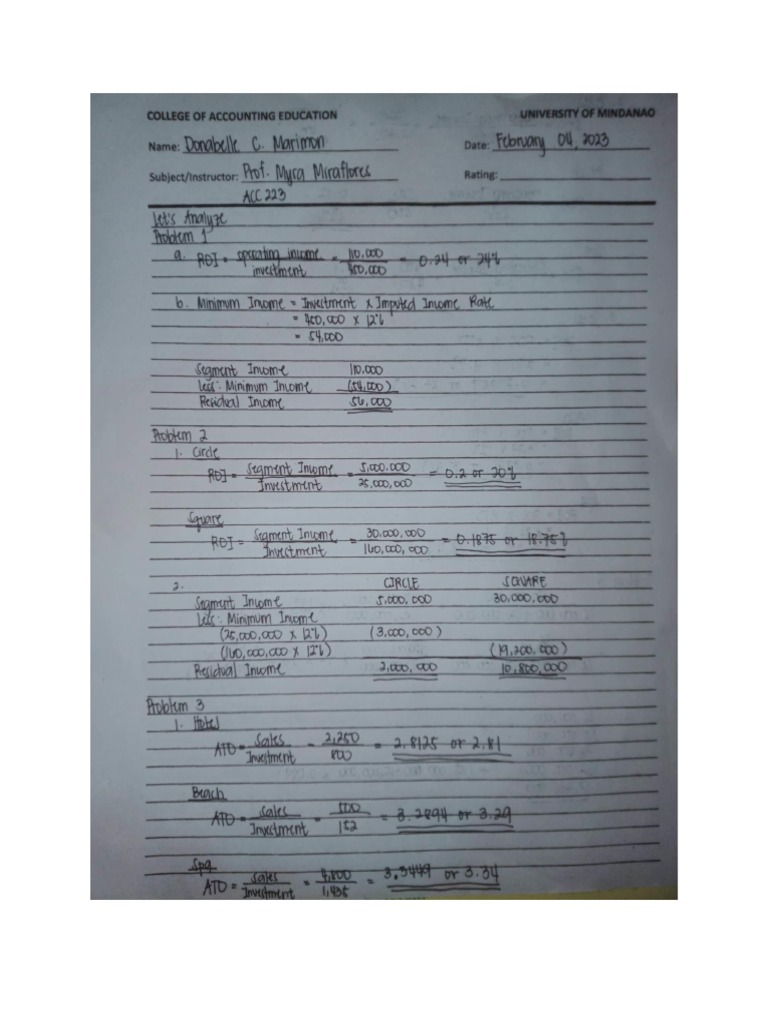 COLLEGE OF ACCOUNTING EDUCATION UNIVERSITY OF MINDANAO
Name: Donabelle C. Marimon Date: February 04, 2023
Subject/Instructor: Prof. Myra Miraflores Rating:
ACC 223
Let's Analyze
Problem 1
a. ROI = operating income / investment = 110,000 / 450,000 = 0.24 or 24%
b. Minimum Income = Investment x Imputed Income Rate
= 450,000 x 12%
= 54,000
Segment Income 110,000
Less: Minimum Income (54,000)
Residual Income 56,000
Problem 2
1. Circle
ROI = Segment Income / Investment = 5,000,000 / 25,000,000 = 0.2 or 20%
Square
ROI = Segment Income / Investment = 30,000,000 / 160,000,000 = 0.1875 or 18.75%
2. CIRCLE SQUARE
Segment Income 5,000,000 30,000,000
Less: Minimum Income
(25,000,000 x 12%) (3,000,000)
(160,000,000 x 12%) (19,200,000)
Residual Income 2,000,000 10,800,000
Problem 3
1. Hotel
ATO = Sales / Investment = 2,250 / 800 = 2.8125 or 2.81
Beach
ATO = Sales / Investment = 500 / 152 = 3.2894 or 3.29
Spa
ATO = Sales / Investment = 4,800 / 1,435 = 3.3449 or 3.34